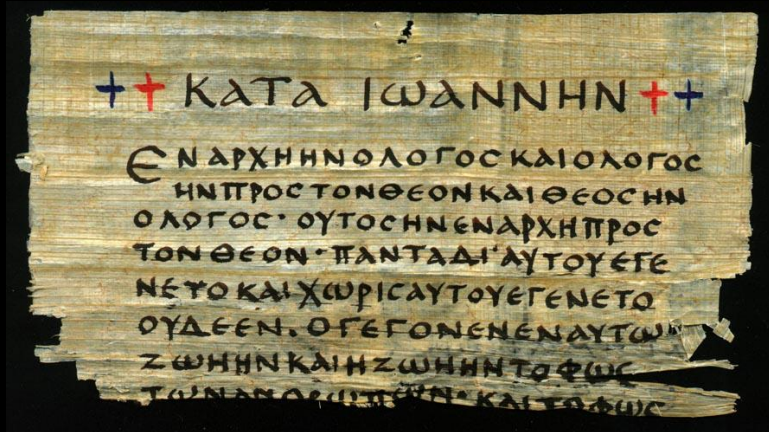 ✝✝ ΚΑΤΑ ΙΩΑΝΝΗΝ ✝✝
ΕΝΑΡΧΗΗΝΟΛΟΓΟϹΚΑΙΟΛΟΓΟϹ
ΗΝΠΡΟϹΤΟΝΘΕΟΝΚΑΙΘΕΟϹΗΝ
ΟΛΟΓΟϹ· ΟΥΤΟϹΗΝΕΝΑΡΧΗΠΡΟϹ
ΤΟΝΘΕΟΝ·ΠΑΝΤΑΔΙ'ΑΥΤΟΥΕΓΕ
ΝΕΤΟΚΑΙΧΩΡΙϹΑΥΤΟΥΕΓΕΝΕΤΟ
ΟΥΔΕΕΝ.ΟΓΕΓΟΝΕΝΕΝΑΥΤΩ
ΖΩΗΗΝΚΑΙΗΖΩΗΗΝΤΟΦΩϹ
ΚΑΙΤΟΦΩϹ